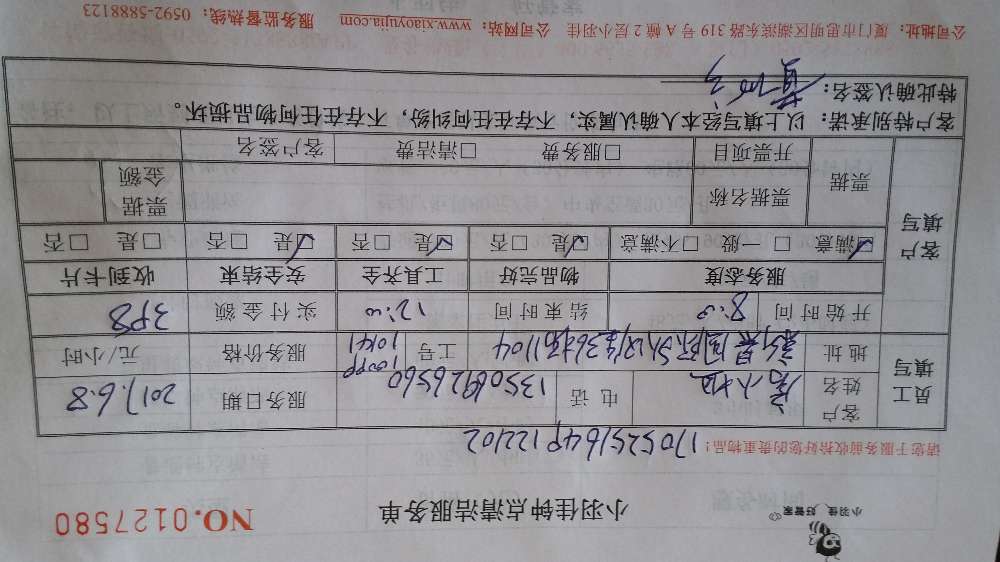 小羽佳 好管家
小羽佳钟点清洁服务单
NO.0127580
请您于服务前收拾好您的贵重物品!
员工填写
客户姓名
小姐
电话
服务日期
2017.6.8
地址
工号
服务价格
元/小时
开始时间
8:00
结束时间
12:00
实付金额
398
客户填写
服务态度
物品完好
工具齐全
安全结束
收到卡片
☑满意 □一般 □不满意
☑是 □否
☑是 □否
☑是 □否
□是 □否
票据
票据名称
票据金额
开票项目
□服务费 □清洁费
客户签名
客户特别承诺:以上填写经本人确认属实,不存在任何纠纷,不存在任何物品损坏。
特此确认签名:
公司地址:厦门市思明区湖滨东路 319 号 A 幢 2 层小羽佳 公司网站:www.xiaoyujia.com 服务监督热线:0592-5888123